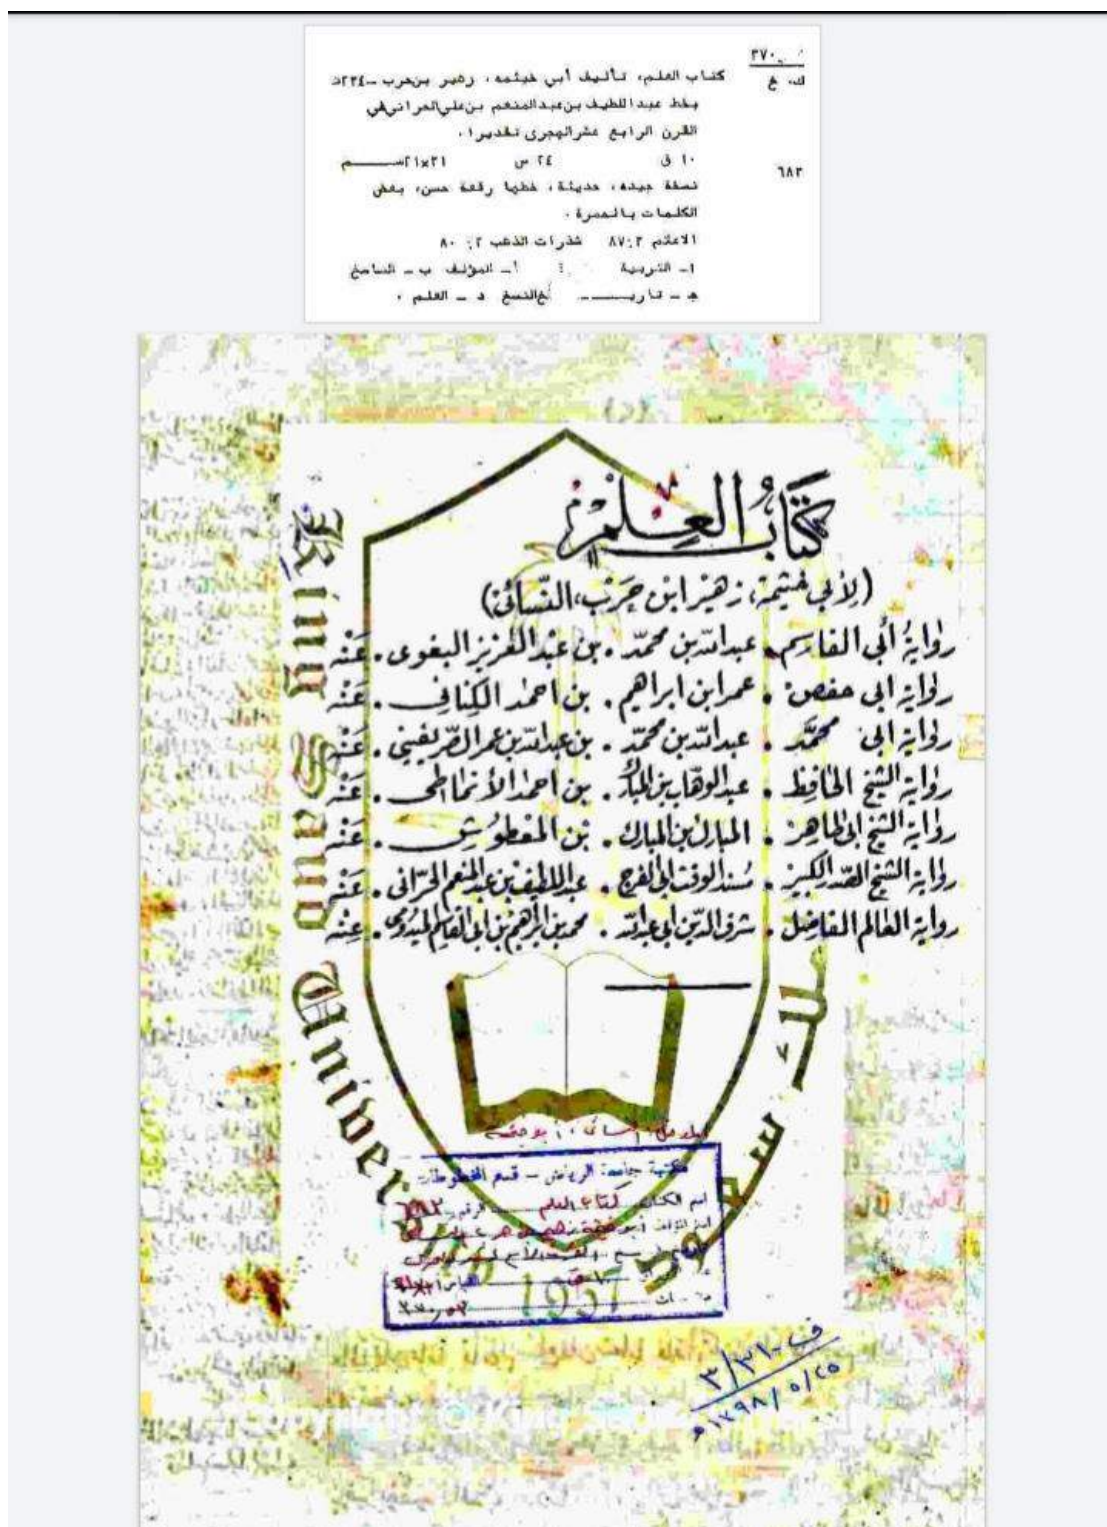 ٣٧٠
ك. خ
كتاب العلم، تأليف أبي خيثمه، زهير بن حرب -٢٣٤ه
بخط عبداللطيف بن عبدالمنعم بن علي الحراني في
القرن الرابع عشر الهجرى تقديرا.
١٠ ق ٢٤ س ٣١×٢١ســم
٦٨٢
نسخة جيده، حديثة، خطها رقعة حسن، بعض
الكلمات بالحمرة.
الاعلام ٨٧:٣ شذرات الذهب ٨٠:٢
١- التربية أ- المؤلف ب- الناسخ
ج- تاريـــــخ النسخ د- العلم.
كِتَابُ العِلْمِ
(لِأبي خيثمة، زهير ابن حَرْب، النّسائي)
رواية أبي القاسم. عبدالله بن محمّد. بن عبد العزيز البغوى. عَنْه
رواية ابي حفص. عمر ابن ابراهيم. بن احمد الكِناني. عَنْه
رواية ابي محمَّد. عبدالله بن محمّد. بن عبدالله بن عمر الصّريفيني. عَنْه
رواية الشيخ الحافظ. عبدالوهاب بن المبارك. بن احمد الأنماطي. عَنْه
رواية الشيخ ابي طاهر. المبارك بن المبارك. بن المعطوش. عَنْه
رواية الشيخ الصّدر الكبير. مُسند الوقت ابي الفرج. عبداللطيف بن عبدالمنعم الحرّاني. عَنْه
رواية العالم الفاضل. شرف الدّين ابي عبدالله. محمد بن ابراهيم بن ابي القاسم الميدومي. عنْه
King Saud Univer
مكتبة جامعة الرياض - قسم المخطوطات
اسم الكتاب كتاب العلم الرقم ٦٨٢
1957
ف ٣/٣١٠
١٣٩٨/٥/٢٥ه